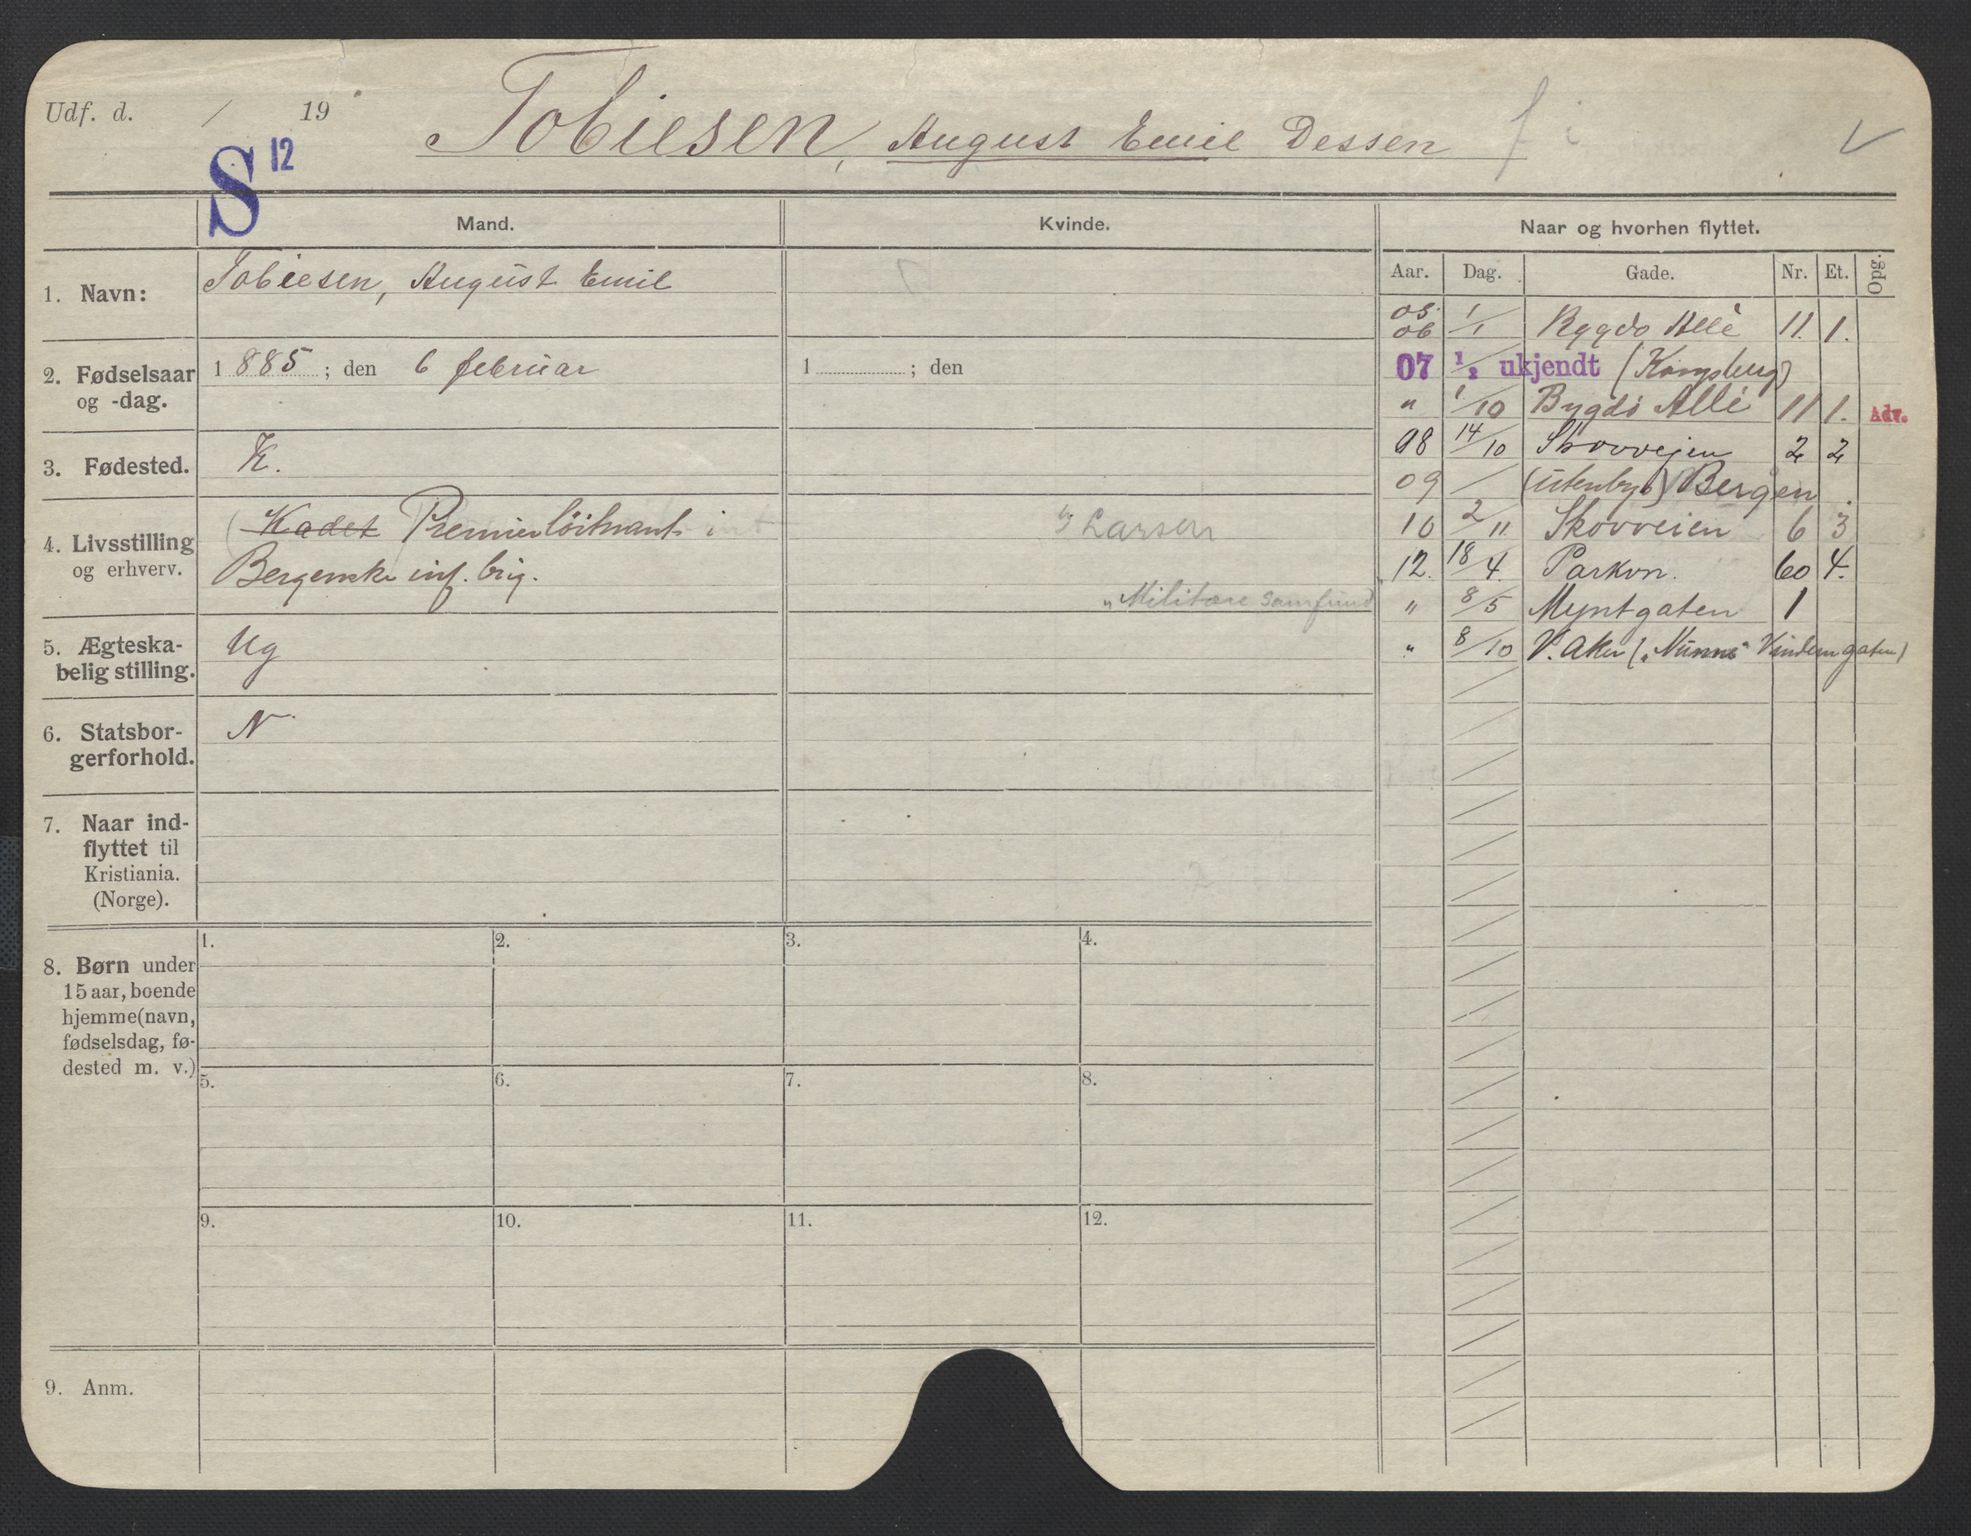 Udf. d. / 19
Tobiesen, August Emil Dessen
S 12
Mand.
Kvinde.
Naar og hvorhen flyttet.
Aar. Dag. Gade. Nr. Et. Opg.
1. Navn:
Tobiesen, August Emil
2. Fødselsaar og -dag.
1885; den 6 februar
1 ; den
3. Fødested.
K.
4. Livsstilling og erhverv.
Kadet Premierløitnant i
Bergenske inf. brig.
Larsen
"Militære Samfund
5. Ægteska-
belig stilling.
Ug
6. Statsbor-
gerforhold.
N
7. Naar ind-
flyttet til
Kristiania.
(Norge).
8. Børn under
15 aar, boende
hjemme (navn,
fødselsdag, fø-
dested m. v.)
1. 2. 3. 4.
5. 6. 7. 8.
9. 10. 11. 12.
9. Anm.
05.
06 1/1 Bygdø Allé 11. 1.
07 1/2 ukjendt (Kongsberg)
" 1/10 Bygdø Allé 11 1. Adv.
08 14/10 Skovveien 2 2
09 / (utenbys) Bergen.
10 2/11 Skovveien 6 3
12. 18/4. Parkvn. 60 4.
" 8/5 Myntgaten 1
" 8/10 V. Aker ("Nunne" Vinderngaten)